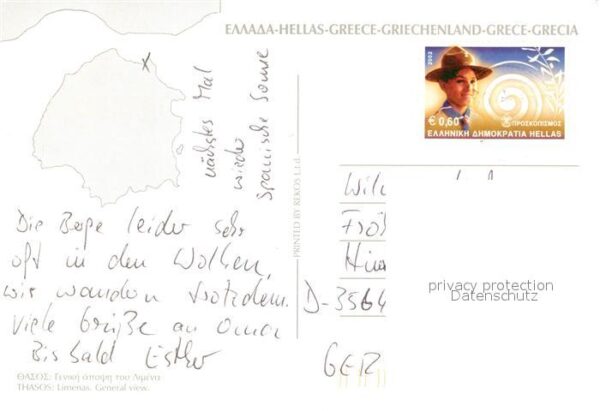 ΕΛΛΑΔΑ-HELLAS-GREECE-GRIECHENLAND-GRECE-GRECIA
2002
€ 0,60
ΠΡΟΣΚΟΠΙΣΜΟΣ
ΕΛΛΗΝΙΚΗ ΔΗΜΟΚΡΑΤΙΑ HELLAS
nächstes Mal
wieder
spanische Sonne
Die Berge leider sehr
oft in den Wolken,
wir wandern trotzdem.
Viele Grüße an Oma
Bis bald Esther
PRINTED BY REKOS Ltd.
Wil
Frö
Hin
D-3564
GER
privacy protection
Datenschutz
ΘΑΣΟΣ: Γενική άποψη του Λιμένα
THASOS: Limenas. General view.